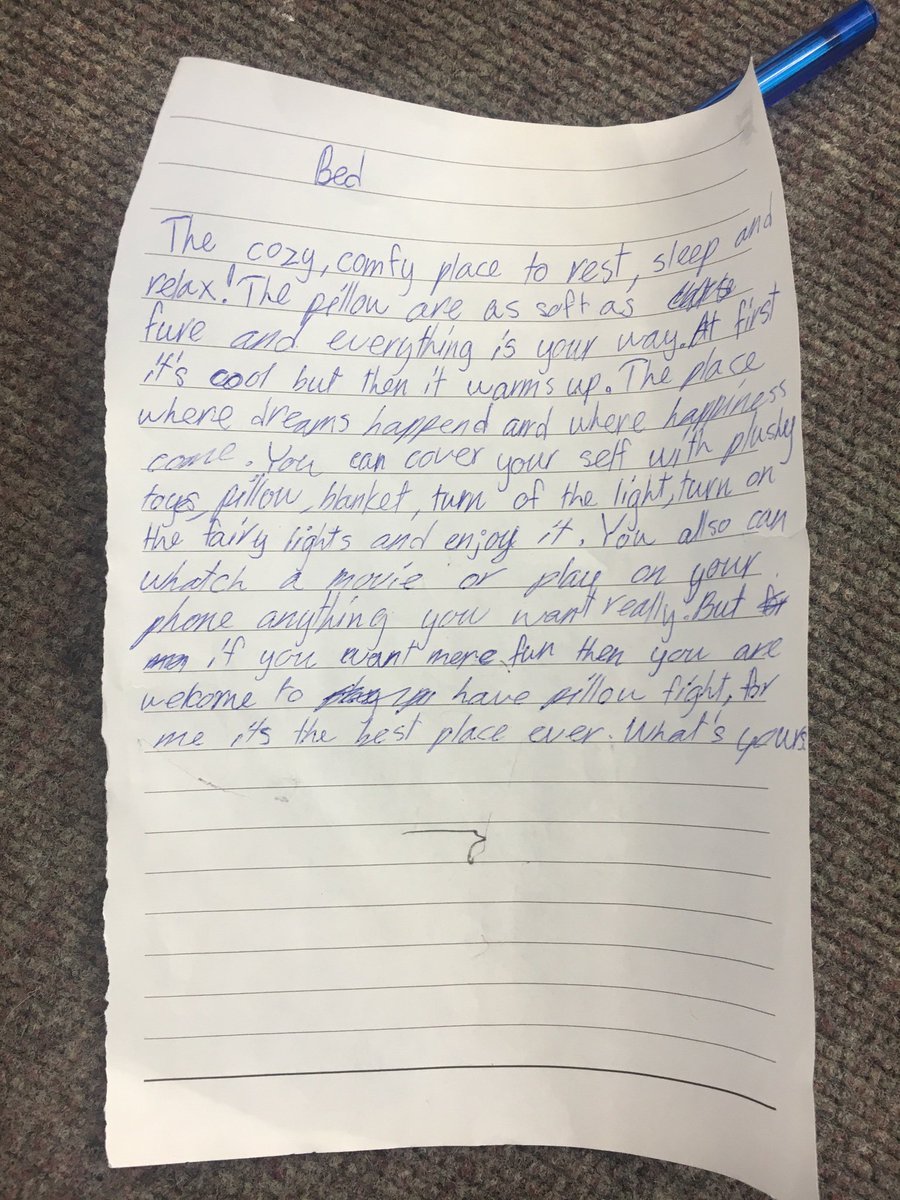 Bed
The cozy, comfy place to rest, sleep and
relax! The pillow are as soft as
fure and everything is your way. At first
it's cool but then it warms up. The place
where dreams happend and where happiness
come. You can cover your self with plushy
toys, pillow, blanket, turn of the light, turn on
the fairy lights and enjoy it. You allso can
whatch a movie or play on your
phone anything you want really. But
if you want more fun then you are
welcome to have pillow fight, for
me it's the best place ever. What's yours